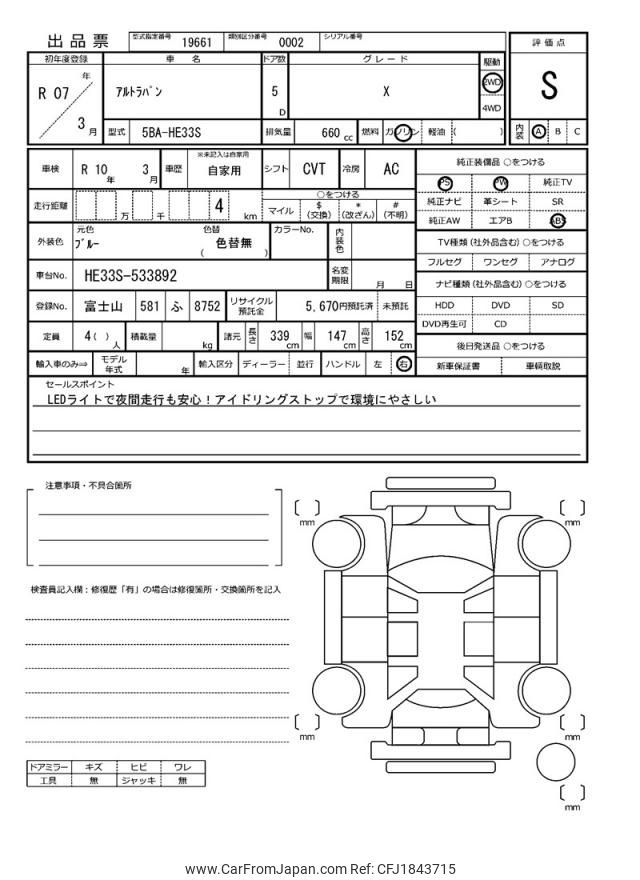 出品票 型式指定番号 19661 類別区分番号 0002 シリアル番号
評価点
S
内装 A B C
初年度登録 車名 ドア数 グレード 駆動
R 07 年 3 月
アルトラパン 5 D X 2WD 4WD
型式 5BA-HE33S 排気量 660 cc 燃料 ガソリン 軽油 ( )
車検 R 10 年 3 月 車歴 ※未記入は自家用 自家用 シフト CVT 冷房 AC
走行距離 万 千 4 km
○をつける
マイル $ (交換) * (改ざん) # (不明)
外装色 元色 ブルー 色替 色替無 ( ) カラーNo. 内装色
車台No. HE33S-533892 名変期限 月 日
登録No. 富士山 581 ふ 8752 リサイクル預託金 5,670円預託済 未預託
定員 4( ) 人 積載量 kg 諸元 長さ 339 cm 幅 147 cm 高さ 152 cm
輸入車のみ⇒ モデル年式 年 輸入区分 ディーラー 並行 ハンドル 左 右
純正装備品 ○をつける
PS PW 純正TV
純正ナビ 革シート SR
純正AW エアB ABS
TV種類 (社外品含む) ○をつける
フルセグ ワンセグ アナログ
ナビ種類 (社外品含む) ○をつける
HDD DVD SD
DVD再生可 CD
後日発送品 ○をつける
新車保証書 車輌取説
セールスポイント
LEDライトで夜間走行も安心！アイドリングストップで環境にやさしい
注意事項・不具合箇所
検査員記入欄：修復歴「有」の場合は修復箇所・交換箇所を記入
ドアミラー キズ ヒビ ワレ
工具 無 ジャッキ 無
mm
mm
mm
mm
mm
www.CarFromJapan.com Ref: CFJ1843715